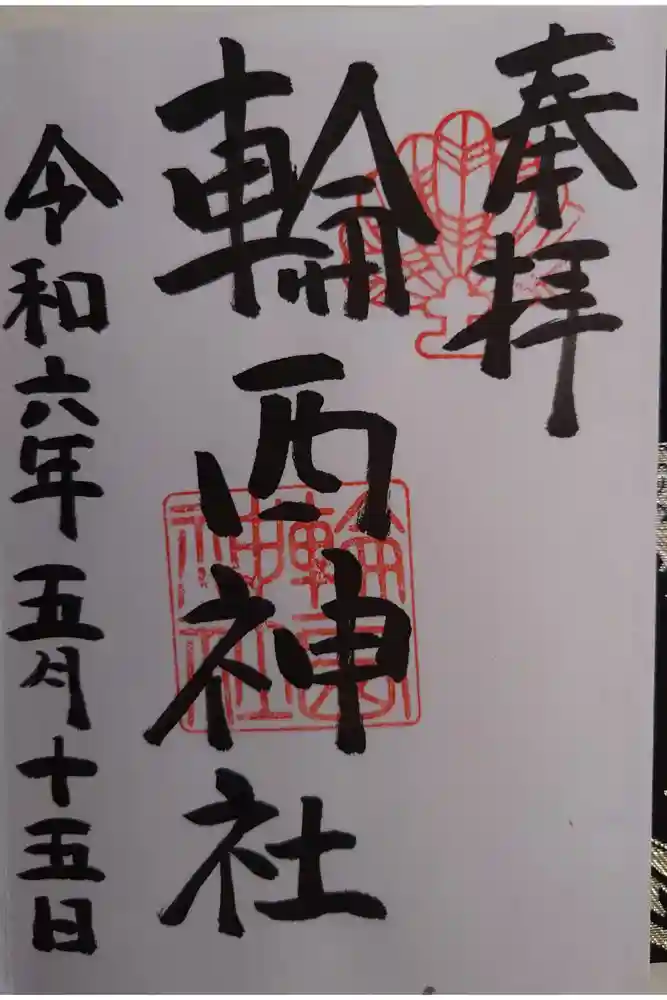 奉拝
輪西神社
輪西神社
令和六年五月十五日